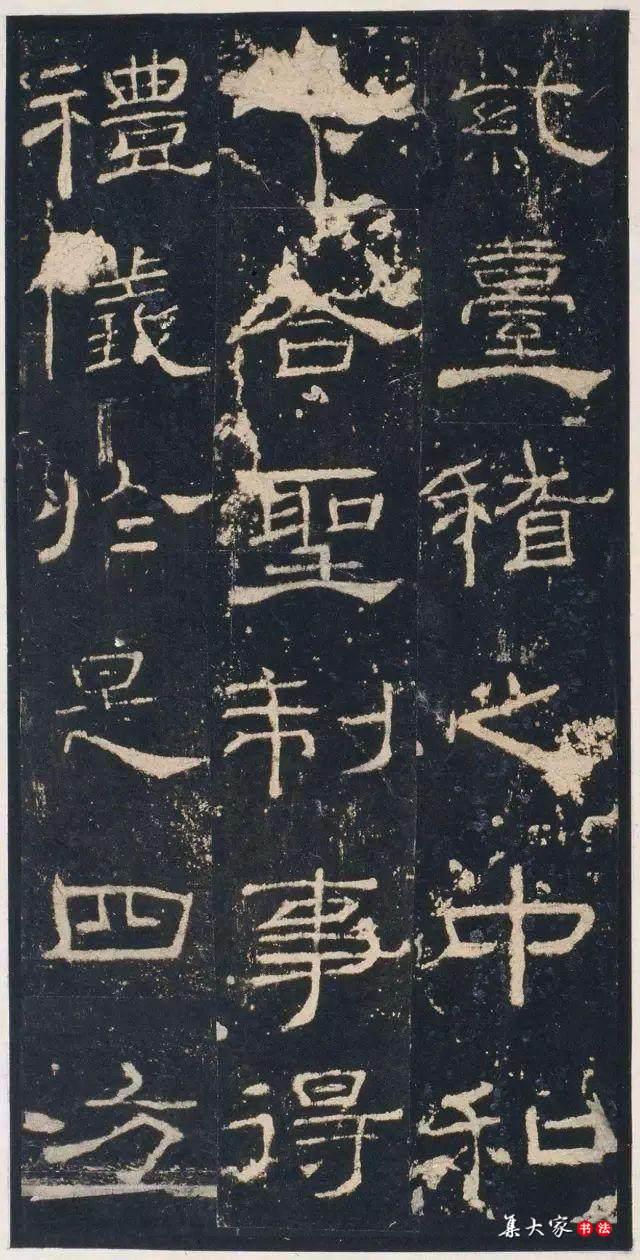 紫臺稽之中和
下合聖制事得
禮儀於是四方
集大家 书法